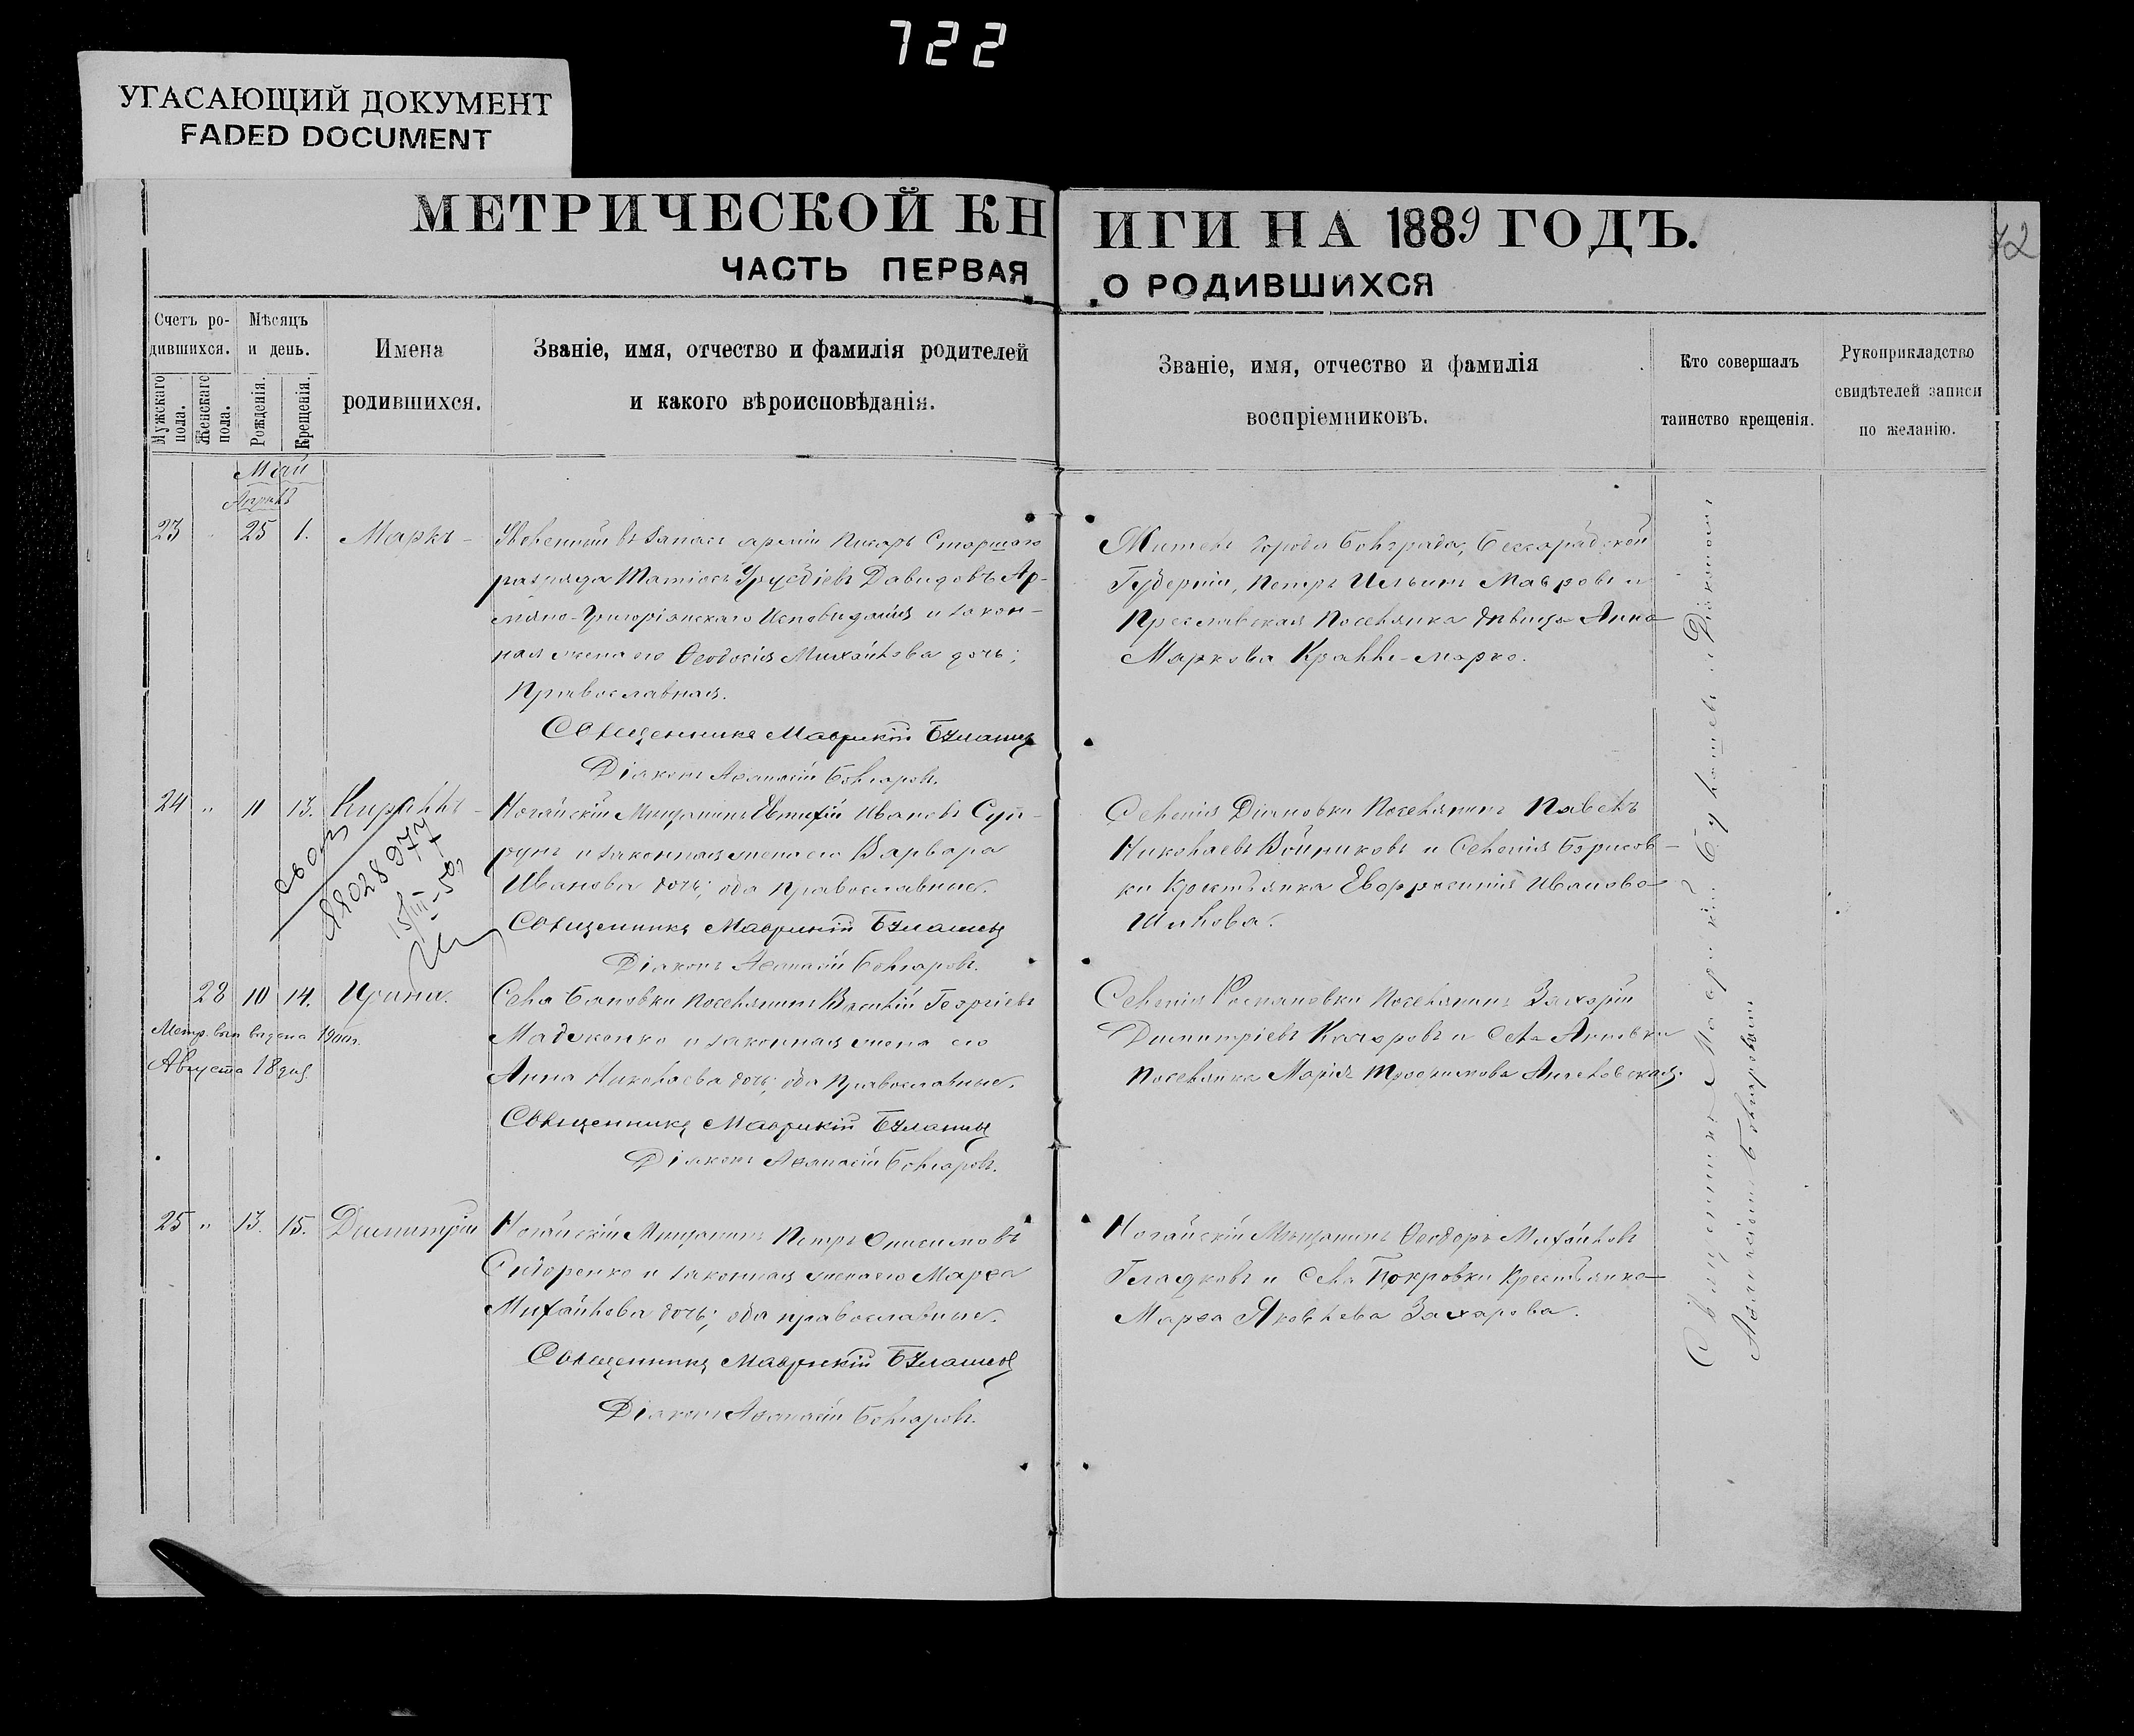 722
УГАСАЮЩИЙ ДОКУМЕНТ
FADED DOCUMENT
МЕТРИЧЕСКОЙ КНИГИ НА 1889 ГОДЪ.
ЧАСТЬ ПЕРВАЯ О РОДИВШИХСЯ
42
Счетъ родившихся.
Мужскаго пола.
Женскаго пола.
Мѣсяцъ и день.
Рожденія.
Крещенія.
Имена родившихся.
Званіе, имя, отчество и фамилія родителей
и какого вѣроисповѣданія.
Званіе, имя, отчество и фамилія
воспріемниковъ.
Кто совершалъ
таинство крещенія.
Рукоприкладство
свидѣтелей записи
по желанію.
Май
Апрѣль
23 25 1. Маркъ
въ запасъ арміи Писарь Старшаго
разряда Давидовъ Ар-
мяно-Григоріанскаго Исповиданія и закон-
ная жена его Ѳеодосія Михайлова дочь;
Православная.
Священникъ Маврикій
Діаконъ Аѳанасій Болгаровъ.
Житель города Болграда, Бессарабской
Губерніи, Петръ Ильинъ Мавровъ и
Преславская Поселянка дѣвица Анна
Маркова
24 " 11 13. Кириллъ
Ногайскій Мищанинъ Евтифій Ивановъ Суп-
рунъ и законная жена его Варвара
Иванова дочь; оба православные.
Священникъ Маврикій
Діаконъ Аѳанасій Болгаровъ.
Селенія Діановки Поселянинъ Павелъ
Николаевъ Войниковъ и Селенія Борисов-
ки Крестьянка Евфросинія Иванова
Шилова.
28 10 14. Ирина.
Метр. вып. выдана
Августа 18 дня
Села Бановки Поселянинъ Василій Георгіевъ
и законная жена его
Анна Николаева дочь; оба Православные.
Священникъ Маврикій
Діаконъ Аѳанасій Болгаровъ.
Селенія Романовки Поселянинъ Захарій
Димитріевъ Качоровъ и Села Анновки
Поселянка Марія Трофимова
25 " 13. 15. Димитрій
Ногайскій Мищанинъ Петръ Онисимовъ
Сидоренко и законная жена его Марѳа
Михайлова дочь; оба православные.
Священникъ Маврикій
Діаконъ Аѳанасій Болгаровъ.
Ногайскій Мѣщанинъ Ѳеодоръ Михайловъ
Гладковъ и Села Покровки Крестьянка
Марѳа Яковлева Захарова.
Священникъ Маврикій съ Діакономъ
Аѳанасіемъ Болгаровымъ